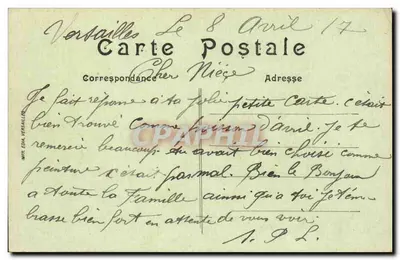 Versailles Le 8 Avril 17
Carte Postale
Correspondance Adresse
Cher Niége
Je fait réponse a ta jolie petite carte. c'était
bien trouvé comme poisson d'avril. Je te
remercie beaucoup tu avait bien choisi comme
peinture c'était pas mal. Bien le Bonjour
a toute la Famille ainsi qu'a toi je t'em
brasse bien fort en attente de vous voir.
PHARTI